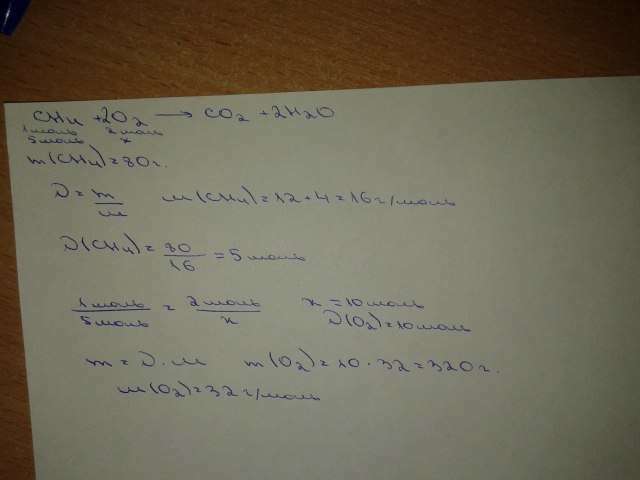 CH₄ + 2O₂ → CO₂ + 2H₂O
1 моль 2 моль
5 моль x
m(CH₄) = 80 г.
D = m/M M(CH₄) = 12 + 4 = 16 г/моль
D(CH₄) = 80/16 = 5 моль
1 моль/5 моль = 2 моль/x x = 10 моль
D(O₂) = 10 моль
m = D · M m(O₂) = 10 · 32 = 320 г.
M(O₂) = 32 г/моль